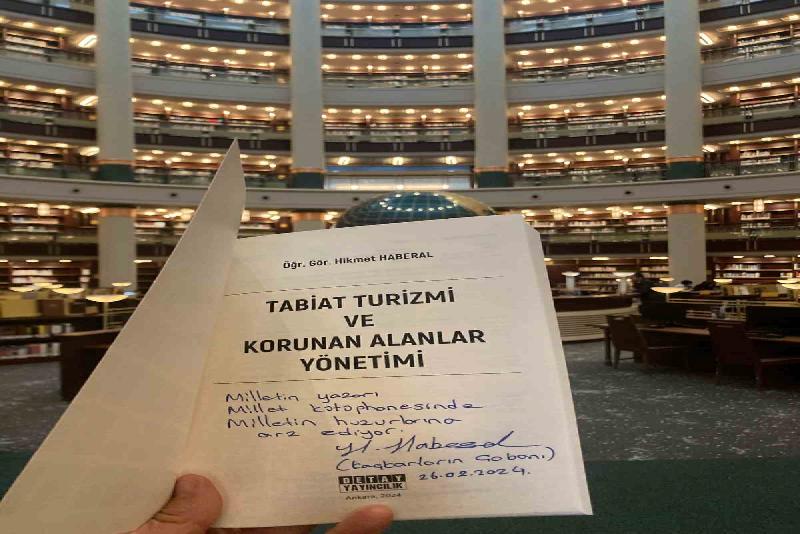 Öğr. Gör. Hikmet HABERAL
TABİAT TURİZMİ
VE
KORUNAN ALANLAR
YÖNETİMİ
Milletin yazarı
Millet kütüphanesinde
Milletin huzurlarına
arz ediyor.
H. Haberal
(Kaçkarların Çobanı)
26.02.2024.
DETAY
YAYINCILIK
Ankara, 2024